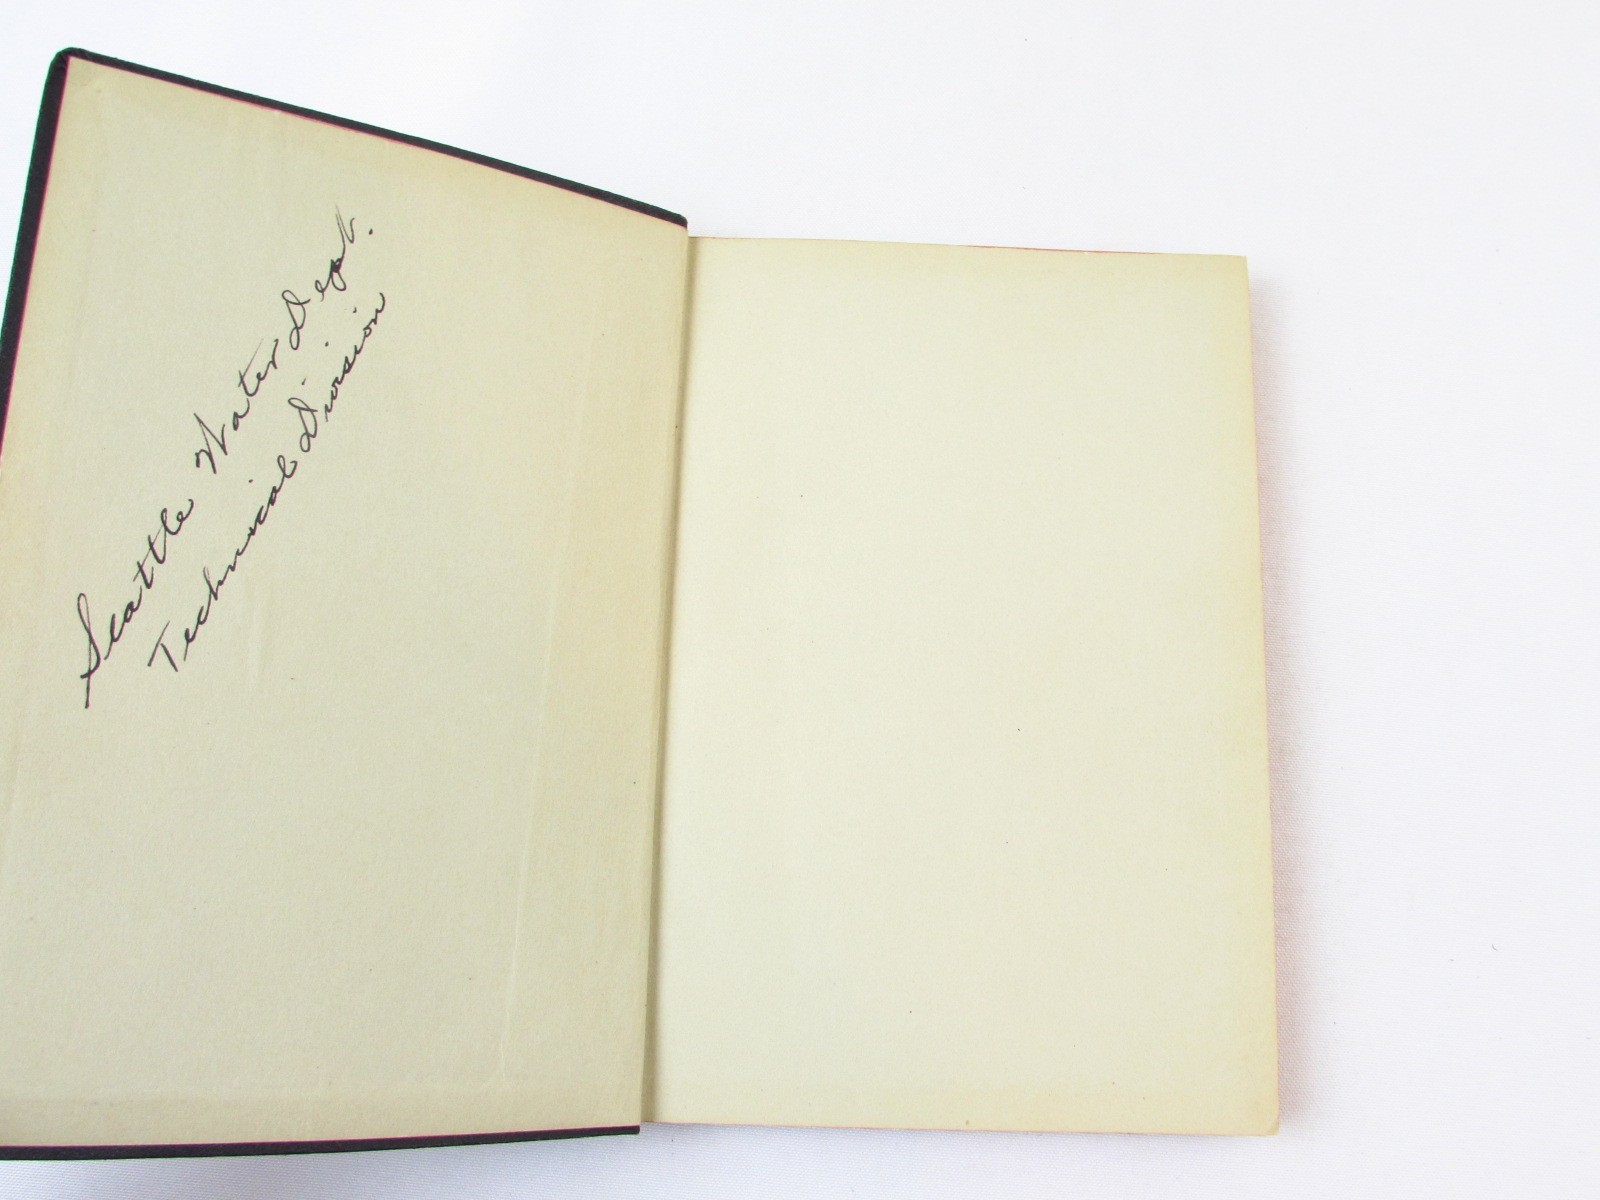 Seattle Water Dept.
Technical Division